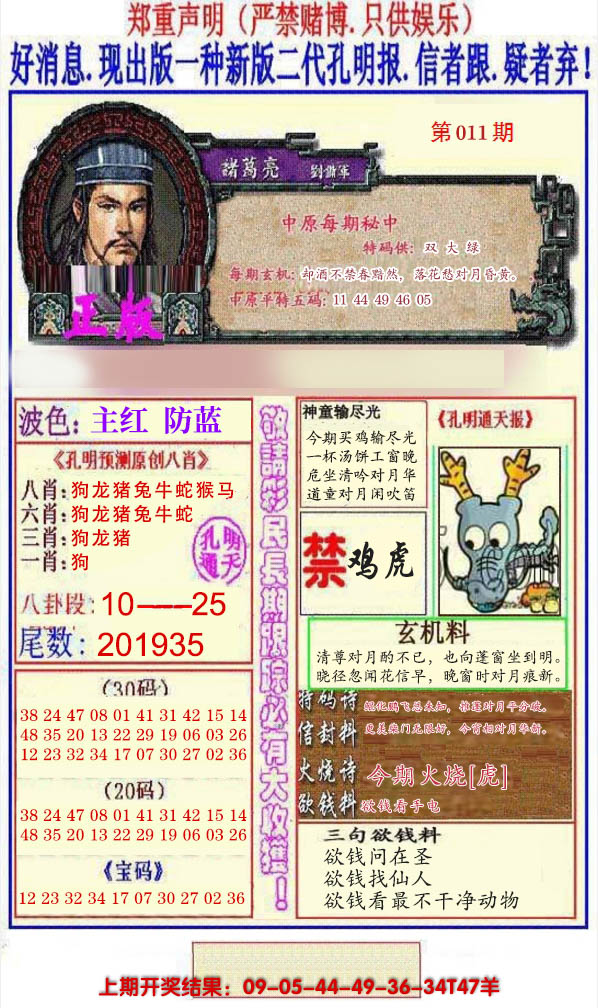 郑重声明（严禁赌博.只供娱乐）
好消息.现出版一种新版二代孔明报.信者跟.疑者弃！
第011期
諸葛亮
劉備軍
中原每期秘中
特码供：双大绿
每期玄机：却酒不禁春黯然，落花愁对月昏黄。
中原平特五码：11 44 49 46 05
正版
波色：主红 防蓝
《孔明预测原创八肖》
八肖：狗龙猪兔牛蛇猴马
六肖：狗龙猪兔牛蛇
三肖：狗龙猪
一肖：狗
孔明
通天
八卦段：10——25
尾数：201935
（30码）
38 24 47 08 01 41 31 42 15 14
48 35 20 13 22 29 19 06 03 26
12 23 32 34 17 07 30 27 02 36
（20码）
38 24 47 08 01 41 31 42 15 14
48 35 20 13 22 29 19 06 03 26
《宝码》
12 23 32 34 17 07 30 27 02 36
敬請彩民長期跟踪必有大收獲！
神童输尽光
今期买鸡输尽光
一杯汤饼工窗晚
危坐清吟对月华
道童对月闲吹笛
《孔明通天报》
禁鸡虎
玄机料
清尊对月酌不已，也向蓬窗坐到明。
晓径忽闻花信早，晚窗时对月痕新。
特码诗
鲲化鹏飞总未知，推蓬对月平分破。
信封料
更美柴门无限好，今宵相对月华新。
火烧诗
今期火烧[虎]
欲钱料
欲钱看手电
三句欲钱料
欲钱问在圣
欲钱找仙人
欲钱看最不干净动物
上期开奖结果：09-05-44-49-36-34T47羊